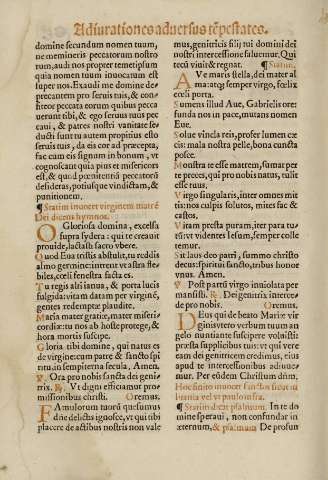 Adiurationes aduersus tẽpestates.
domine secundum nomen tuum,
ne memineris peccatorum nostro
rum, audi nos propter temetipsum
quia nomen tuum inuocatum est
super nos. Exaudi me domine de-
precantem pro seruis tuis, & con-
fiteor peccata eorum quibus pecca
uerunt tibi, & ego seruus tuus pec
caui, & patres nostri vanitate se-
ducti sunt tu autem propitius esto
seruis tuis, da eis cor ad præcepta,
fac cum eis signum in bonum, vt
cognoscant quia pius et misericors
es, & quod pœnitentiã peccatorũ
desideras, potiusque vindictam, &
punitionem.
¶ Statim inuocet virginem matrẽ
Dei dicens hymnos.
O Gloriosa domina, excelsa
supra sydera: qui te creauit
prouide, lactasti sacro vbere.
Quod Eua tristis abstulit, tu reddis
almo germine: intrent vt astra fle
biles, cœli fenestra facta es.
Tu regis alti ianua, & porta lucis
fulgida: vitam datam per virginẽ,
gentes redemptæ plaudite.
Maria mater gratiæ, mater miseri-
cordiæ: tu nos ab hoste protege, &
hora mortis suscipe.
Gloria tibi domine, qui natus es
de virgine: cum patre & sancto spi
ritu in sempiterna secula. Amen.
℣. Ora pro nobis sancta dei geni-
trix. ℟. Vt digni efficiamur pro-
missionibus christi. Oremus.
FAmulorum tuorũ quæsumus
dñe delictis ignosce, vt qui tibi
placere de actibus nostris non vale
mus, genitricis filij tui domini dei
nostri intercessione saluemur. Qui
tecũ viuit & regnat. ¶ Statim.
AVe maris stella, dei mater al
ma: atq; semper virgo, fœlix
cœli porta.
Sumens illud Aue, Gabrielis ore:
funda nos in pace, mutans nomen
Eue.
Solue vincla reis, profer lumen cæ
cis: mala nostra pelle, bona cuncta
posce.
Monstra te esse matrem, sumat per
te preces, qui pro nobis natus, tulit
esse tuus.
Virgo singularis, inter omnes mi
tis: nos culpis solutos, mites fac &
castos.
Vitam præsta puram, iter para tu-
tũ: vt videntes Iesum, semper colle
temur.
Sit laus deo patri, summo christo
decus: spiritui sancto, tribus honor
vnus. Amen.
℣. Post partũ virgo inuiolata per
mansisti. ℟. Dei genitrix interce-
de pro nobis. Oremus.
DEus qui de beatæ Mariæ vir
ginis vtero verbum tuum an
gelo nuntiante suscipere voluisti:
præsta supplicibus tuis: vt qui vere
eam dei genitricem credimus, eius
apud te intercessionibus adiuue-
mur. Per eũdem Christum dñm.
Hoc finito inuocet sanctos sicut in
litania vel vt paulo infra.
¶ Statim dicat psalmum. In te do
mine speraui, non confundar in
æternum, & psalmum De profun